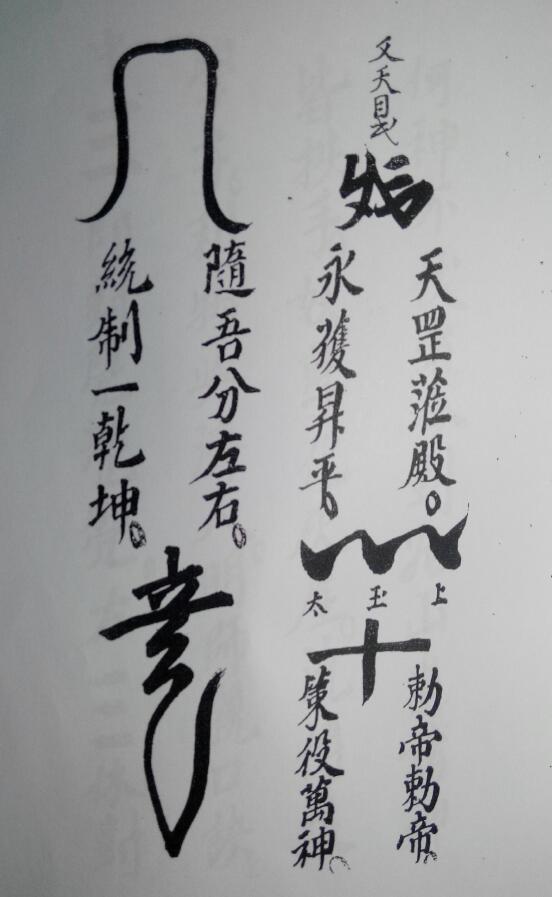 天罡蒞殿。
永獲昇平。
上玉太
勅帝勅帝。
策役萬神。
隨吾分左右。
統制一乾坤。